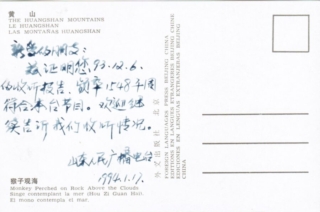 黄 山
THE HUANGSHAN MOUNTAINS
LE HUANGSHAN
LAS MONTAÑAS HUANGSHAN
朋友:
兹证明您'93.12.6.
的收听报告,频率1548千周
符合本台节目。欢迎继
续告诉我们收听情况。
山东人民广播电台
1994.1.17.
猴子观海
Monkey Perched on Rock Above the Clouds
Singe contemplant la mer (Hou Zi Guan Hai)
El mono contempla el mar.
外文出版社 北京
FOREIGN LANGUAGES PRESS BEIJING CHINA
EDITIONS EN LANGUES ETRANGERES BEIJING CHINE
EDICIONES EN LENGUAS EXTRANJERAS BEIJING CHINA